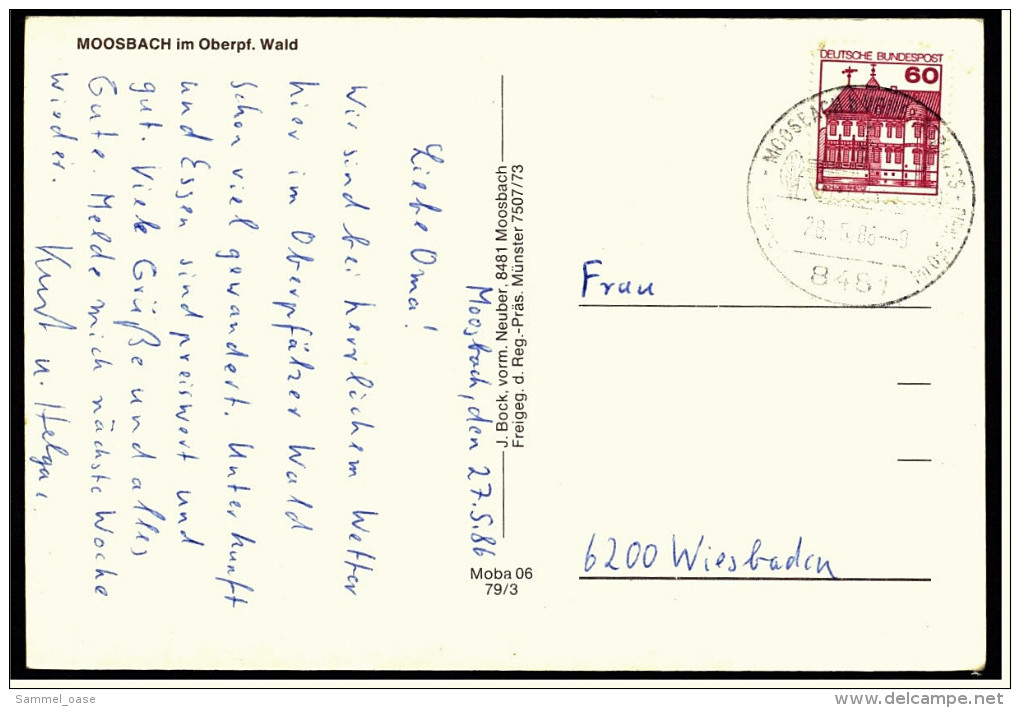 MOOSBACH im Oberpf. Wald
Moosbach, den 27.5.86
Liebe Oma!
Wir sind bei herrlichem Wetter
hier im Oberpfälzer Wald
schon viel gewandert. Unterkunft
und Essen sind preiswert und
gut. Viele Grüße und alles
Gute. Melde mich nächste Woche
wieder.
Kurt u. Helga.
J. Bock, vorm. Neuber, 8481 Moosbach
Freigeg. d. Reg.-Präs. Münster 7507/73
Moba 06
79/3
DEUTSCHE BUNDESPOST
60
MOOSBACH
28.-5.86--9
8481
Frau
6200 Wiesbaden
Sammel_oase
www.delcampe.net